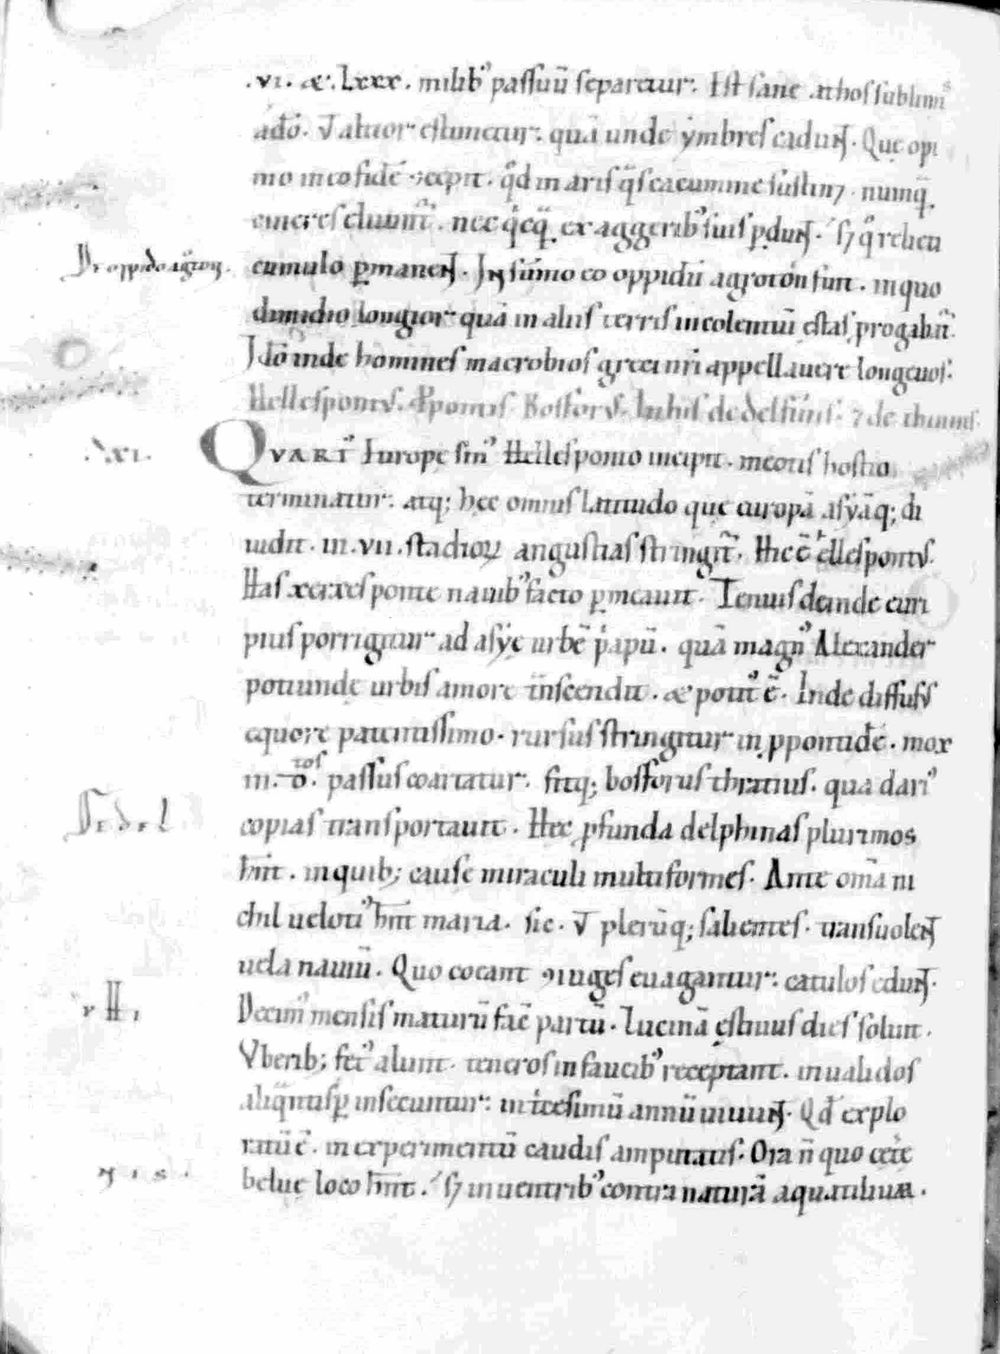 .vi. æ. Lxxx. milib᾽ passuū separatur: Est sane athos sublimi᾽
adō. V̄ aliuor estimetur: quā unde ymbres cadunt. Que opi
nio inco fidē ꝯcepit. qd̄ in aris q̄s cacumine sustin&. numq̄
cineres eluunt̄. nec qicq̄. ex aggerib᾽ suis ꝑdunt. s; qͦ relicti
De oppido agroton. cumulo ꝑmanent. In sūmo eo oppidū agroton fuit. in quo
dimidio longior quā in aliis terris incolentiū ȩstas progabat᷑.
Idō inde homines macrobios greci nr̄i appellauere longeuos:
Hellespontus. Ppontis. Bosforus. In his de delfinis. ⁊ de thinnis.
.xi. Quart᾽ Europe sin᾽ Hellesponto incipit. meotis hostio
terminatur: atq; hȩc omnis latitudo quȩ europā asyāq; di
uidit. in. vii. stadioꝝ angustias stringit᷑. Hic ē ellespontus.
Has xerxes ponte nauib᾽ facto ꝑmeauit. Tenuis deinde euri
pius porrigitur ad asyȩ urbē pⁱapū. quā magn᾽ Alexander
potiundȩ urbis amore t̄nscendit. æ potit᾽ ē. Inde diffusus
equore patentissimo. rursus stringitur in ppontidē. mox
in. d̄.tos passus coartatur: fitq; bosforus thratius. qua dari᾽
De del copias transportauit. Hec pfunda delphinas plurimos
hn̄t. in quib; cause miraculi multiformes. Ante om̄a ni
chil uelocı᾽ hn̄t maria. sic. v̄ plerūq; salientes. transuolent
uela nauiū. Quo eocant ꝯiuges euagantur: catulos edunt.
Decim᾽ mensis maturū facē partū. Lucinā ȩstiuus dies soluit.
Vberib; fet᾽ alunt. teneros in faucib᾽ receptant. inualidos
aliq̄ntisꝑ insecuntur: in tⁱcesimū annū uiuunt. Qd̄ explo
ratū ē. in experimentū caudis amputatis. Ora n̄ quo cetȩ
beluȩ loco hn̄t. s; in uentrib᾽ contra naturā aquatiliūm.